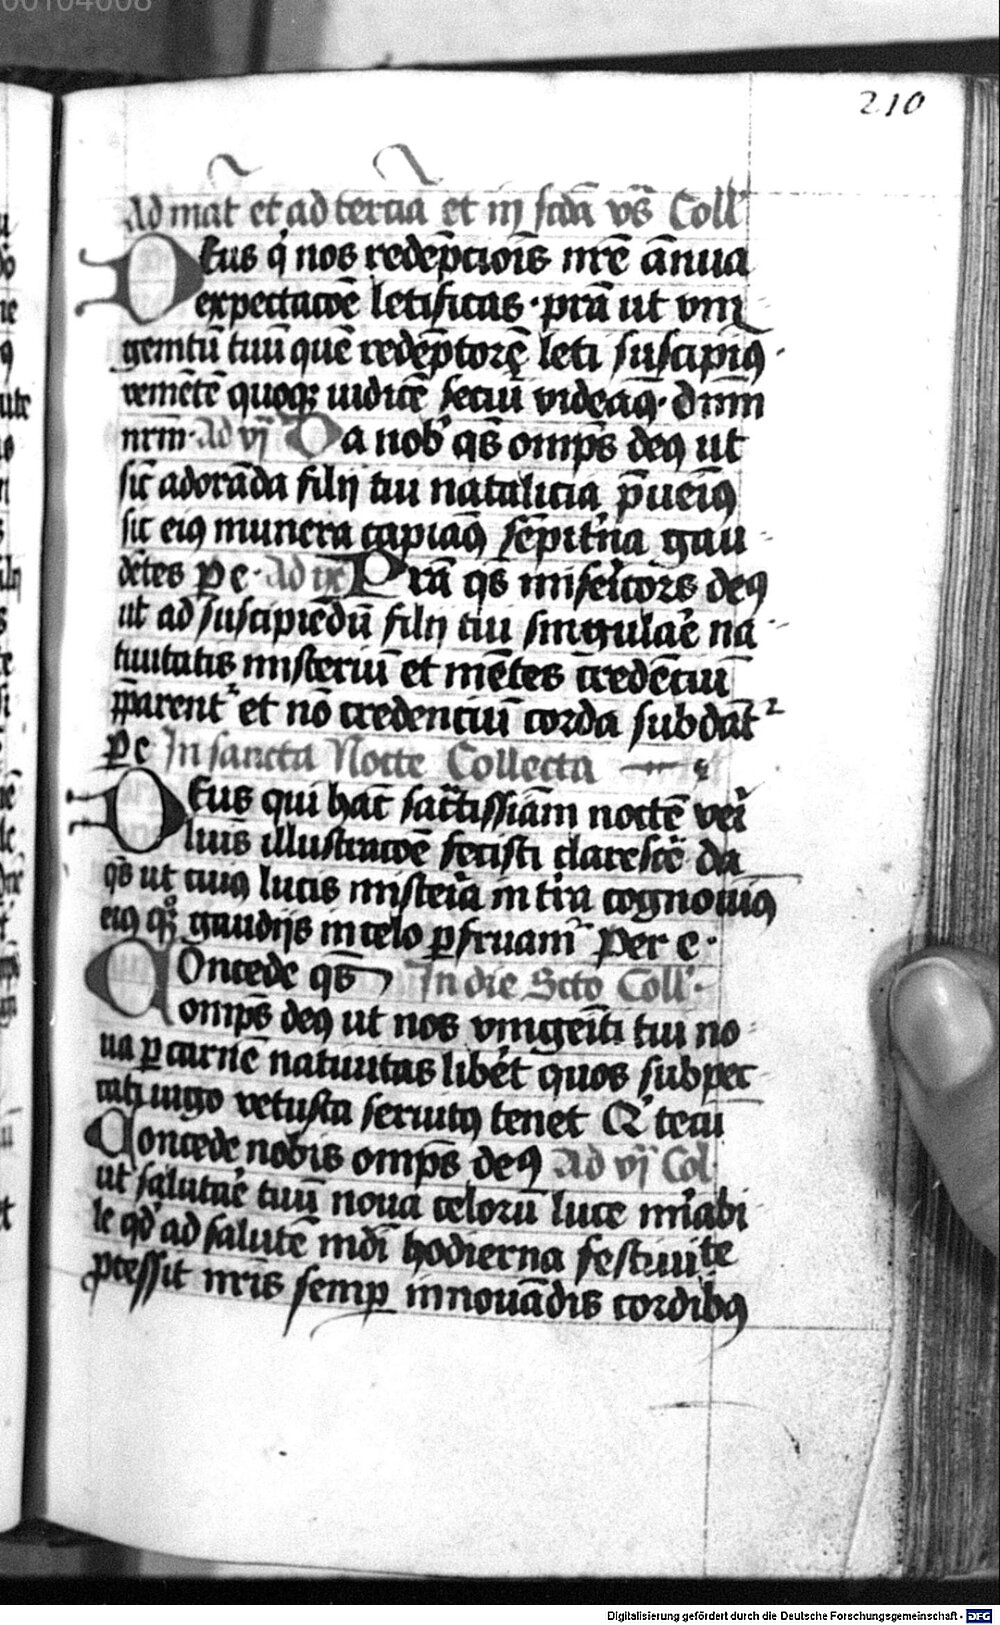 00104668
210
Ad mat̄ et ad terciā et in scdā vs̄ Coll'
DEus q̇ nos redēpcıoīs nr̄e ān̄ua
expectacōe letificas · prā ut vni
genıtū tuū quē redēptorē leti suscipimꝯ ·
veniētē quoqꝫ iudicē secūi videamꝯ · dnm̄
nrm̄ · Ad vj Da nob' qs̄ omps̄ deꝯ ut
sic̄ adorāda filij tui natalicia p̄ueiꝰ
sic eiꝯ munera capiamꝯ sēpit'na gau
dētes p c · Ad ix Prā qs̄ misericors deꝯ
ut ad suscipiēdū filij tui singulare na
tiuitatis misteriū et mētes credēciū
p̄parent² et nō credenciū corda subdāt²
p c In sancta Nocte Collecta
DEus qui hāc sac̄tissiām noctē veri
luīs illustracōe fecisti claresce͞ da
qs̄ ut cuiꝯ lucis misteria in tra cognouimꝯ
eiꝯ qꝫ gaudijs in celo ꝑfruam² Per e ·
COncede qs̄ In die Scto Coll' ·
omps̄ deꝯ ut nos vnigeīti tui no
ua ꝑ carnē natiuitas libēt quos sub pec
cati iugo vetusta seruitꝯ tenet Q² tecū
Concede nobis omps̄ deꝯ Ad vj Col
ut salutare tuū noua celorū luce mīabi
le qd' ad salutē mdī hodierna festiuite
p̄cessit nris semꝑ innouādis cordibꝯ
Digitalisierung gefördert durch die Deutsche Forschungsgemeinschaft - DFG